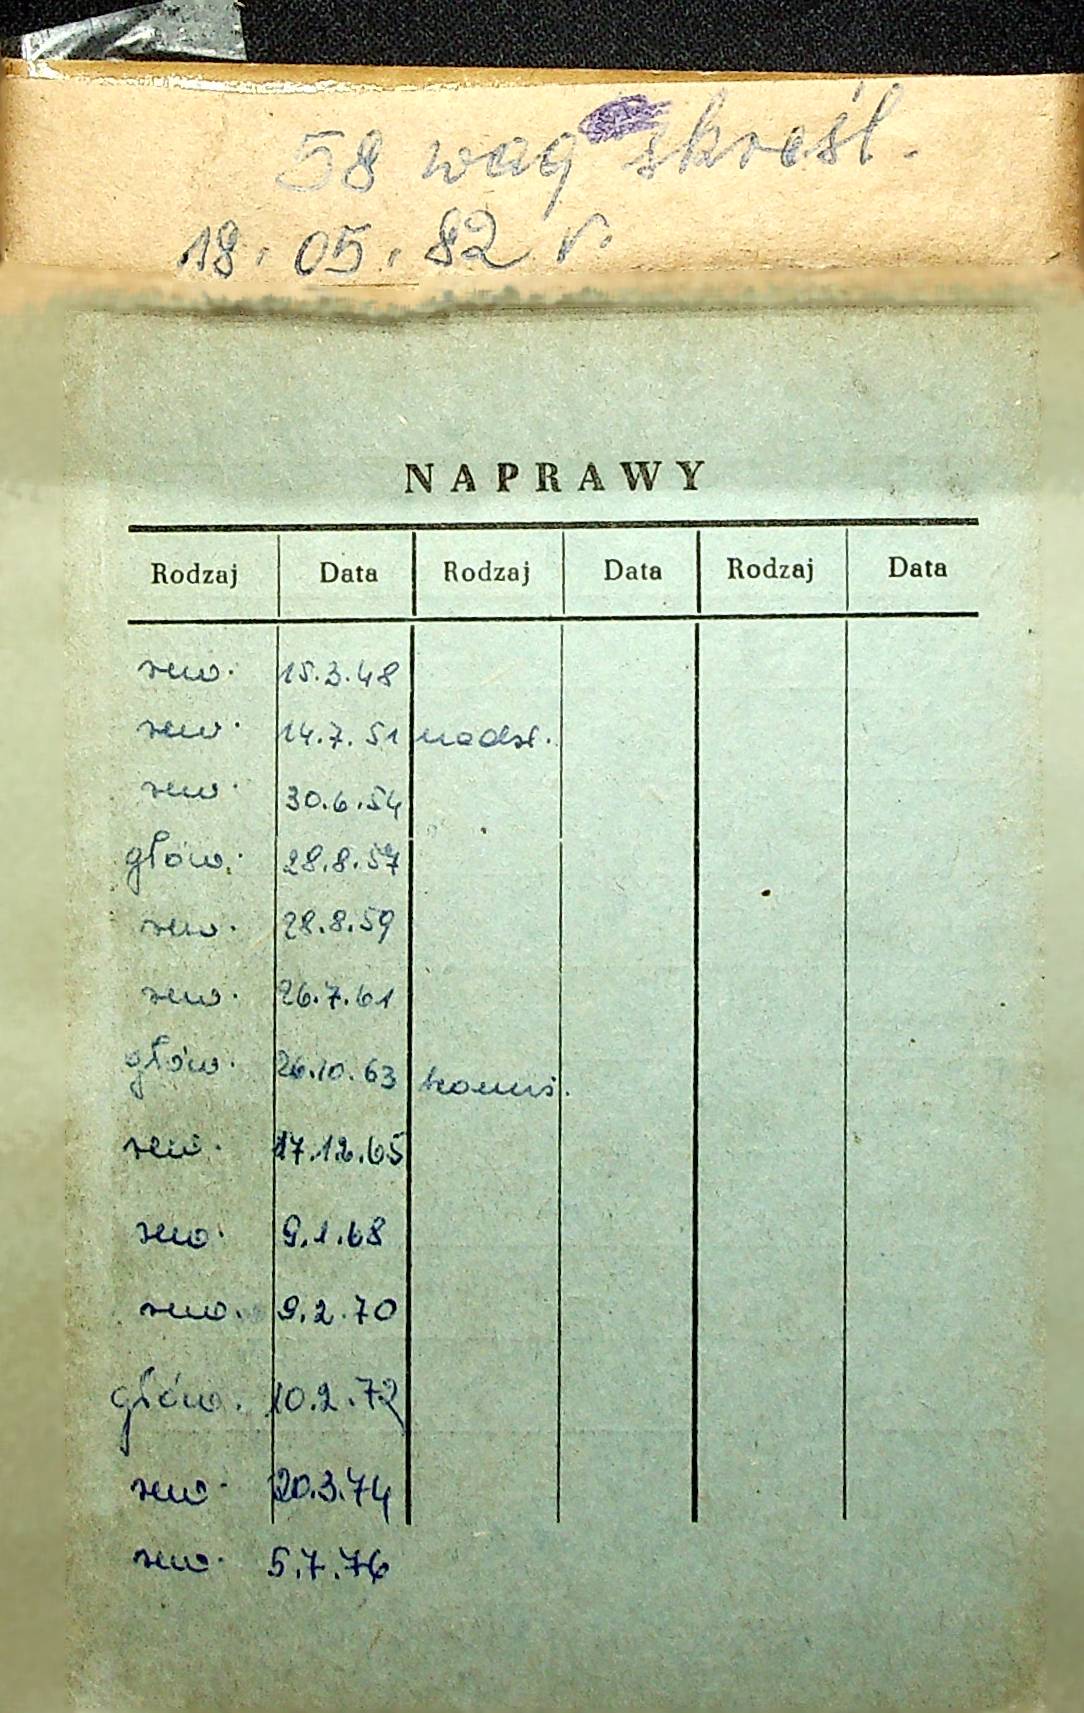 58 wag skreśl.
18.05.82 r.
NAPRAWY
Rodzaj Data Rodzaj Data Rodzaj Data
rew. 15.3.48
rew. 14.7.51 nadsł.
rew. 30.6.54
głów. 28.8.57
rew. 28.8.59
rew. 26.7.61
głów. 26.10.63
rew. 17.12.65
rew. 9.1.68
rew. 9.2.70
głów. 10.2.72
rew. 20.3.74
rew. 5.7.76